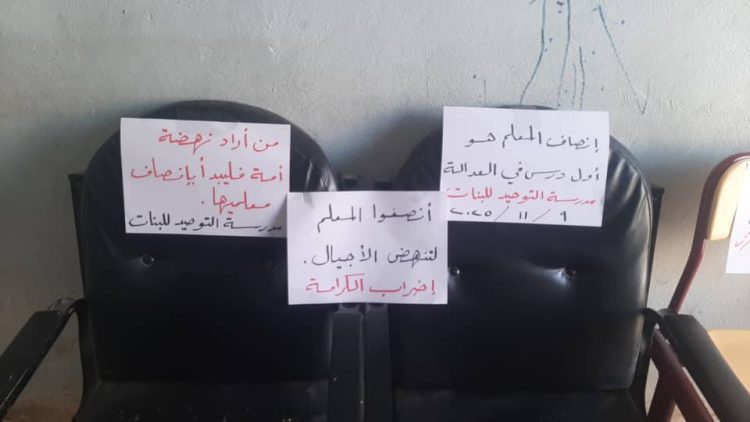 إنصاف المعلم هو
أول درس في العدالة
مدرسة التوحيد للبنات
٢٠٢٥/١١/٩
من أراد نهضة
أمة فليبدأ بإنصاف
معلميها.
مدرسة التوحيد للبنات
أنصفوا المعلم
لتنهض الأجيال.
إضراب الكرامة